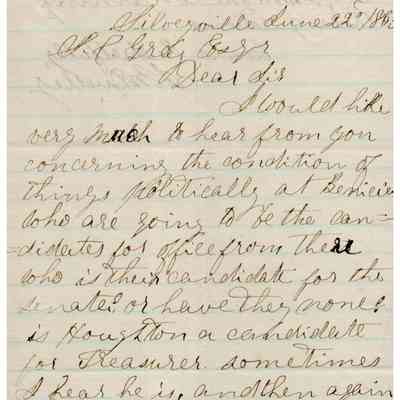 Silverville June 22d
S. C. Gray Esqr
Dear Sir
I would like
very much to hear from you
concerning the condition of
things politically at Benicia
who are going to be the can=
=didates for office from there
who is their candidate for the
senate? or have they none?
is Houghton a candidate
for Treasurer sometimes
I hear he is, and then again